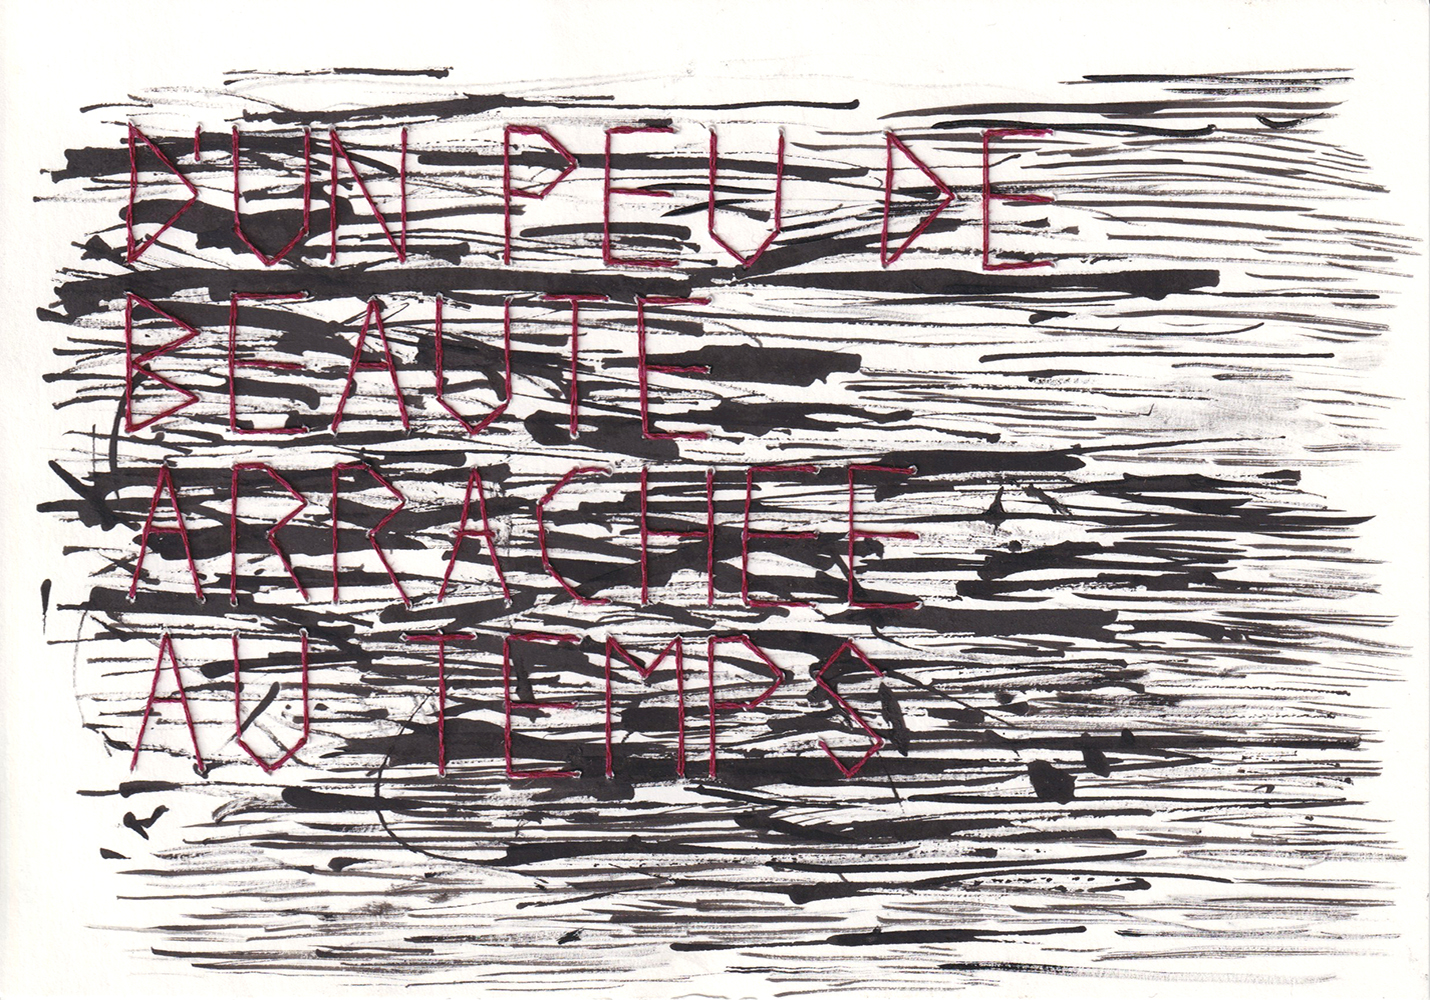 D'UN PEU DE
BEAUTE
ARRACHEE
AU TEMPS